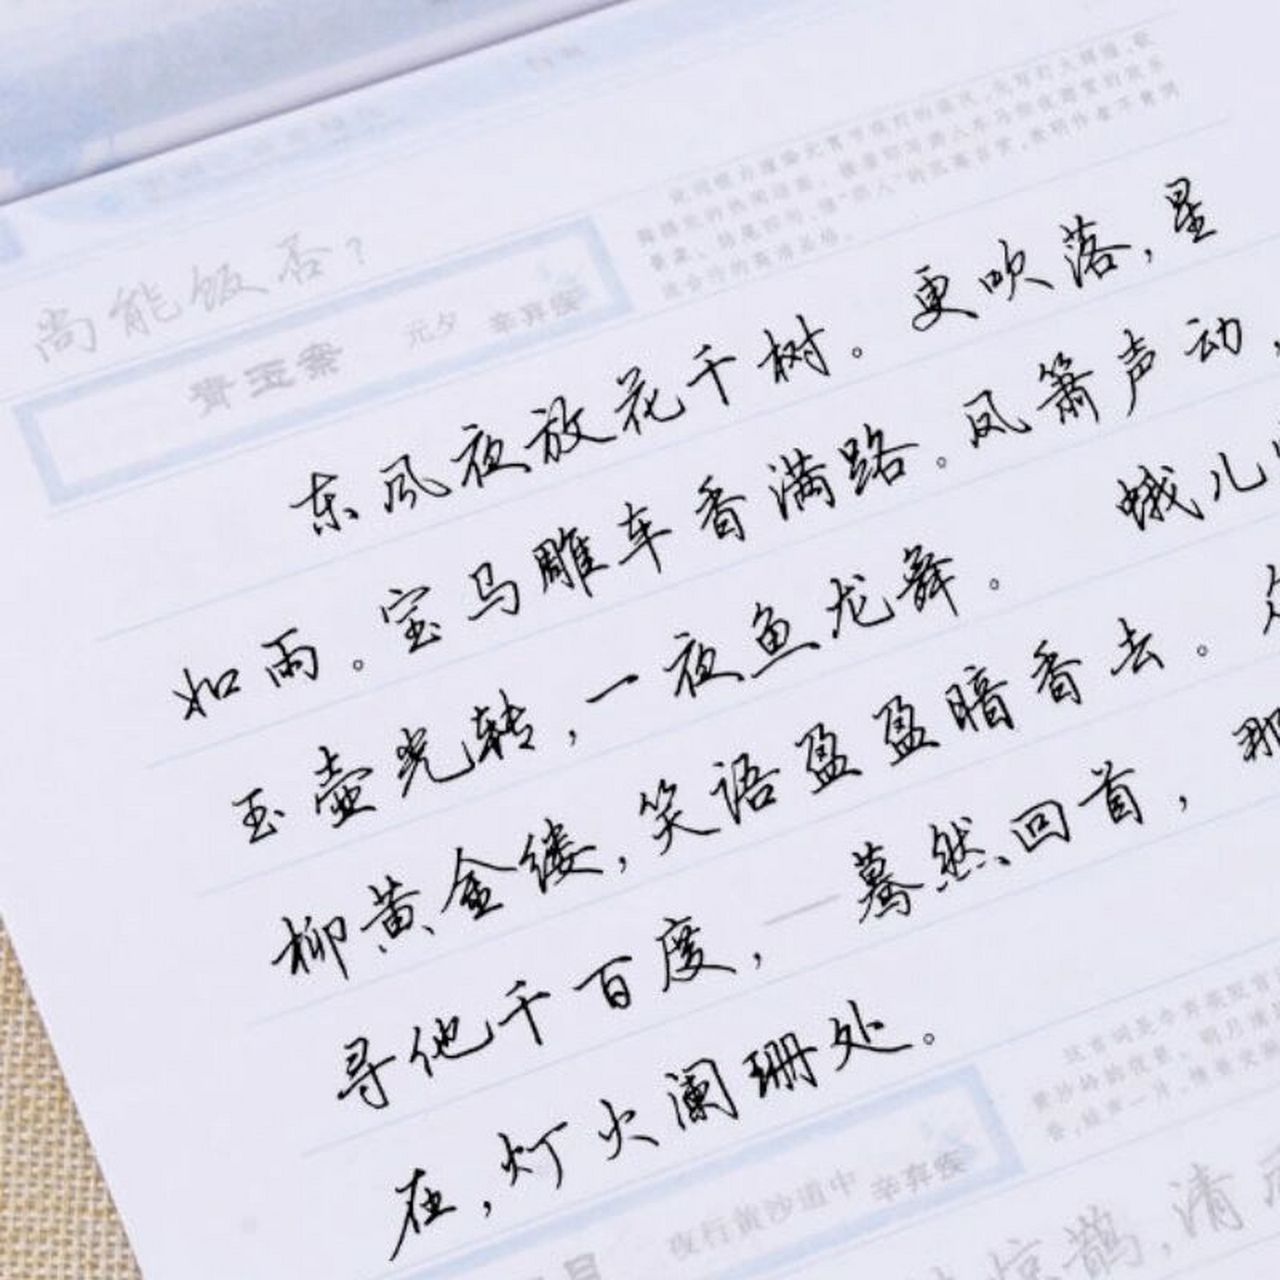 尚能饭否？
青玉案 元夕 辛弃疾
东风夜放花千树。更吹落，星
如雨。宝马雕车香满路。凤箫声动，
玉壶光转，一夜鱼龙舞。 蛾儿
柳黄金缕，笑语盈盈暗香去。
寻他千百度，蓦然回首，那
在，灯火阑珊处。
夜行黄沙道中 辛弃疾
惊鹊，清